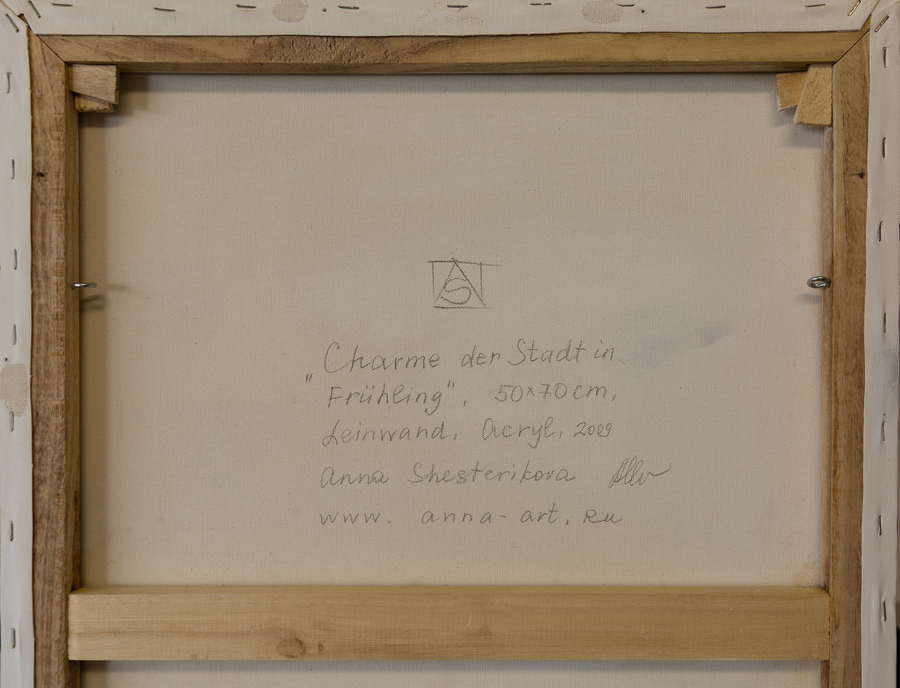 „Charme der Stadt in
Frühling", 50×70 cm,
Leinwand, Acryl, 2009
Anna Shesterikova
www. anna-art.ru